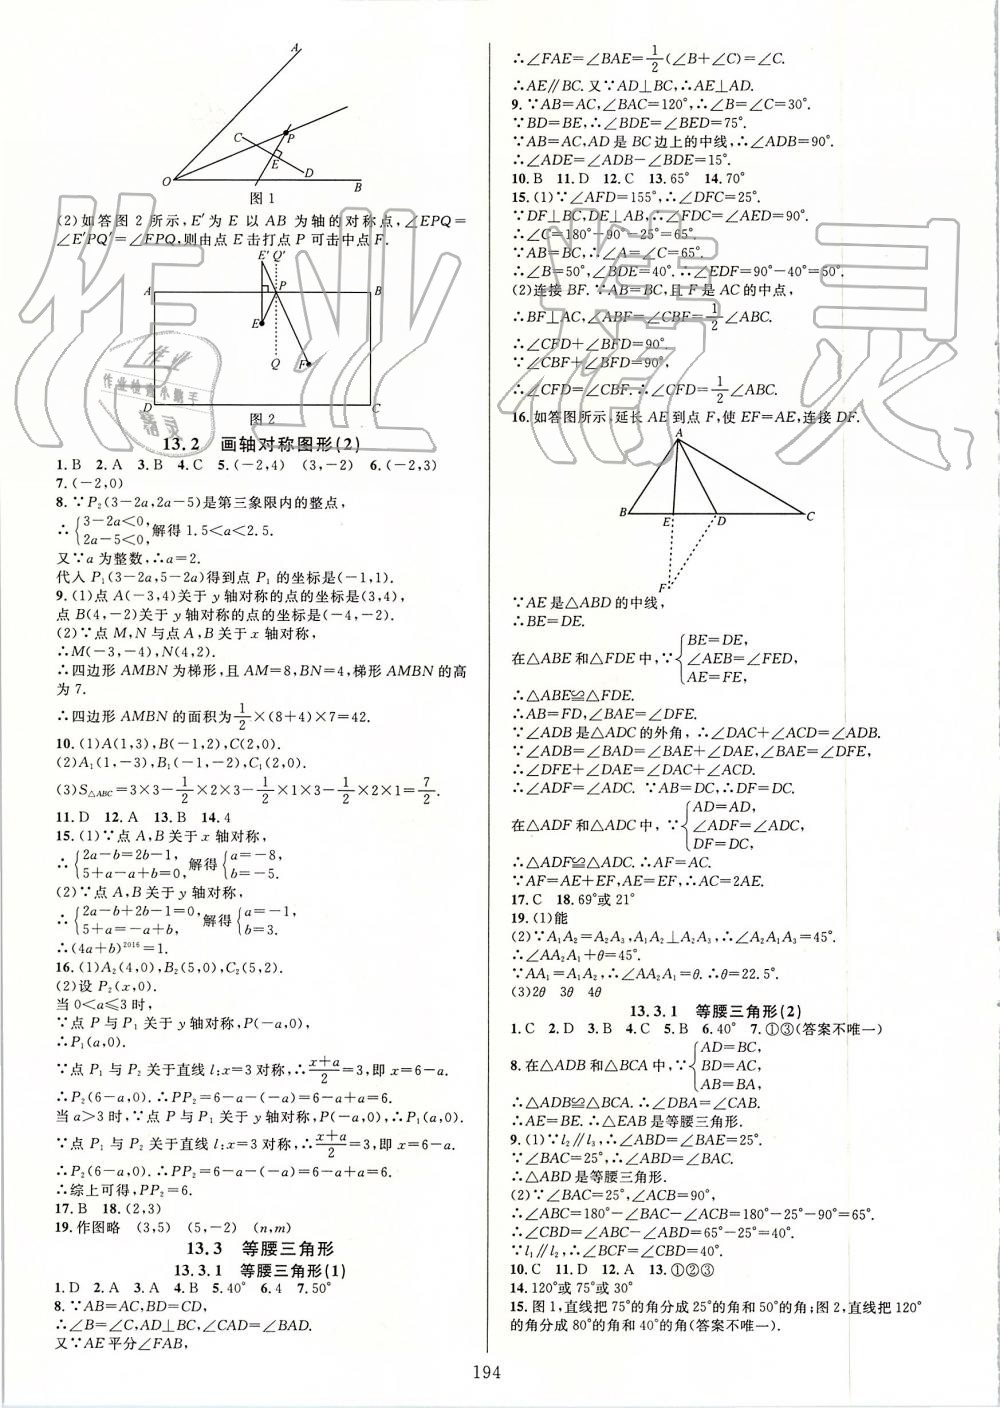 A
C
P
E
D
O
B
图1
(2)如答图2所示,E′为E以AB为轴的对称点,∠EPQ=
∠E′PQ′=∠FPQ,则由点E击打点P可击中点F.
E′ Q′
A P B
E
Q F
D C
图2
13.2 画轴对称图形(2)
1.B 2.A 3.B 4.C 5.(-2,4) (3,-2) 6.(-2,3)
7.(-2,0)
8.∵P₂(3-2a,2a-5)是第三象限内的整点,
∴{3-2a<0, 2a-5<0,解得1.5<a<2.5.
又∵a为整数,∴a=2.
代入P₁(3-2a,5-2a)得到点P₁的坐标是(-1,1).
9.(1)点A(-3,4)关于y轴对称的点的坐标是(3,4),
点B(4,-2)关于y轴对称的点的坐标是(-4,-2).
(2)∵点M,N与点A,B关于x轴对称,
∴M(-3,-4),N(4,2).
∴四边形AMBN为梯形,且AM=8,BN=4,梯形AMBN的高
为7.
∴四边形AMBN的面积为1/2×(8+4)×7=42.
10.(1)A(1,3),B(-1,2),C(2,0).
(2)A₁(1,-3),B₁(-1,-2),C₁(2,0).
(3)S△ABC=3×3-1/2×2×3-1/2×1×3-1/2×2×1=7/2.
11.D 12.A 13.B 14.4
15.(1)∵点A,B关于x轴对称,
∴{2a-b=2b-1, 5+a-a+b=0.解得{a=-8, b=-5.
(2)∵点A,B关于y轴对称,
∴{2a-b+2b-1=0, 5+a=-a+b,解得{a=-1, b=3.
∴(4a+b)²⁰¹⁶=1.
16.(1)A₂(4,0),B₂(5,0),C₂(5,2).
(2)设P₂(x,0).
当0<a≤3时,
∵点P与P₁关于y轴对称,P(-a,0),
∴P₁(a,0).
∵点P₁与P₂关于直线l:x=3对称,∴(x+a)/2=3,即x=6-a.
∴P₂(6-a,0).∴PP₂=6-a-(-a)=6-a+a=6.
当a>3时,∵点P与P₁关于y轴对称,P(-a,0),∴P₁(a,0).
∵点P₁与P₂关于直线l:x=3对称,∴(x+a)/2=3,即x=6-a.
∴P₂(6-a,0).∴PP₂=6-a-(-a)=6-a+a=6.
∴综上可得,PP₂=6.
17.B 18.(2,3)
19.作图略 (3,5) (5,-2) (n,m)
13.3 等腰三角形
13.3.1 等腰三角形(1)
1.D 2.A 3.A 4.D 5.40° 6.4 7.50°
8.∵AB=AC,BD=CD,
∴∠B=∠C,AD⊥BC,∠CAD=∠BAD.
又∵AE平分∠FAB,
∴∠FAE=∠BAE=1/2(∠B+∠C)=∠C.
∴AE∥BC.又∵AD⊥BC,∴AE⊥AD.
9.∵AB=AC,∠BAC=120°,∴∠B=∠C=30°.
∵BD=BE,∴∠BDE=∠BED=75°.
∵AB=AC,AD是BC边上的中线,∴∠ADB=90°.
∴∠ADE=∠ADB-∠BDE=15°.
10.B 11.D 12.C 13.65° 14.70°
15.(1)∵∠AFD=155°,∴∠DFC=25°.
∵DF⊥BC,DE⊥AB,∴∠FDC=∠AED=90°.
∴∠C=180°-90°-25°=65°.
∵AB=BC,∴∠A=∠C=65°.
∴∠B=50°,∠BDE=40°.∴∠EDF=90°-40°=50°.
(2)连接BF.∵AB=BC,且F是AC的中点,
∴BF⊥AC,∠ABF=∠CBF=1/2∠ABC.
∴∠CFD+∠BFD=90°.
∵∠CBF+∠BFD=90°,
∴∠CFD=∠CBF.∴∠CFD=1/2∠ABC.
16.如答图所示,延长AE到点F,使EF=AE,连接DF.
A
B E D C
F
∵AE是△ABD的中线,
∴BE=DE.
在△ABE和△FDE中,∵{BE=DE, ∠AEB=∠FED, AE=FE,
∴△ABE≌△FDE.
∴AB=FD,∠BAE=∠DFE.
∵∠ADB是△ADC的外角,∴∠DAC+∠ACD=∠ADB.
∵∠ADB=∠BAD=∠BAE+∠DAE,∠BAE=∠DFE,
∴∠DFE+∠DAE=∠DAC+∠ACD.
∴∠ADF=∠ADC. ∵AB=DC,∴DF=DC.
在△ADF和△ADC中,∵{AD=AD, ∠ADF=∠ADC, DF=DC,
∴△ADF≌△ADC.∴AF=AC.
∵AF=AE+EF,AE=EF,∴AC=2AE.
17.C 18.69°或21°
19.(1)能
(2)∵A₁A₂=A₂A₃,A₁A₂⊥A₂A₃,∴∠A₂A₁A₃=45°.
∴∠AA₂A₁+θ=45°.
∵AA₁=A₁A₂,∴∠AA₂A₁=θ.∴θ=22.5°.
(3)2θ 3θ 4θ
13.3.1 等腰三角形(2)
1.C 2.D 3.B 4.C 5.B 6.40° 7.①③(答案不唯一)
8.在△ADB和△BCA中,∵{AD=BC, BD=AC, AB=BA,
∴△ADB≌△BCA.∴∠DBA=∠CAB.
∴AE=BE.∴△EAB是等腰三角形.
9.(1)∵l₂∥l₃,∴∠ABD=∠BAE=25°.
∵∠BAC=25°,∴∠ABD=∠BAC.
∴△ABD是等腰三角形.
(2)∵∠BAC=25°,∠ACB=90°,
∴∠ABC=180°-∠BAC-∠ACB=180°-25°-90°=65°.
∴∠CBD=∠ABC-∠ABD=65°-25°=40°.
∵l₁∥l₂,∴∠BCF=∠CBD=40°.
10.C 11.D 12.A 13.①②③
14.120°或75°或30°
15.图1,直线把75°的角分成25°的角和50°的角;图2,直线把120°
的角分成80°的角和40°的角(答案不唯一).
194
作业精灵
作业
作业检查小帮手
精灵